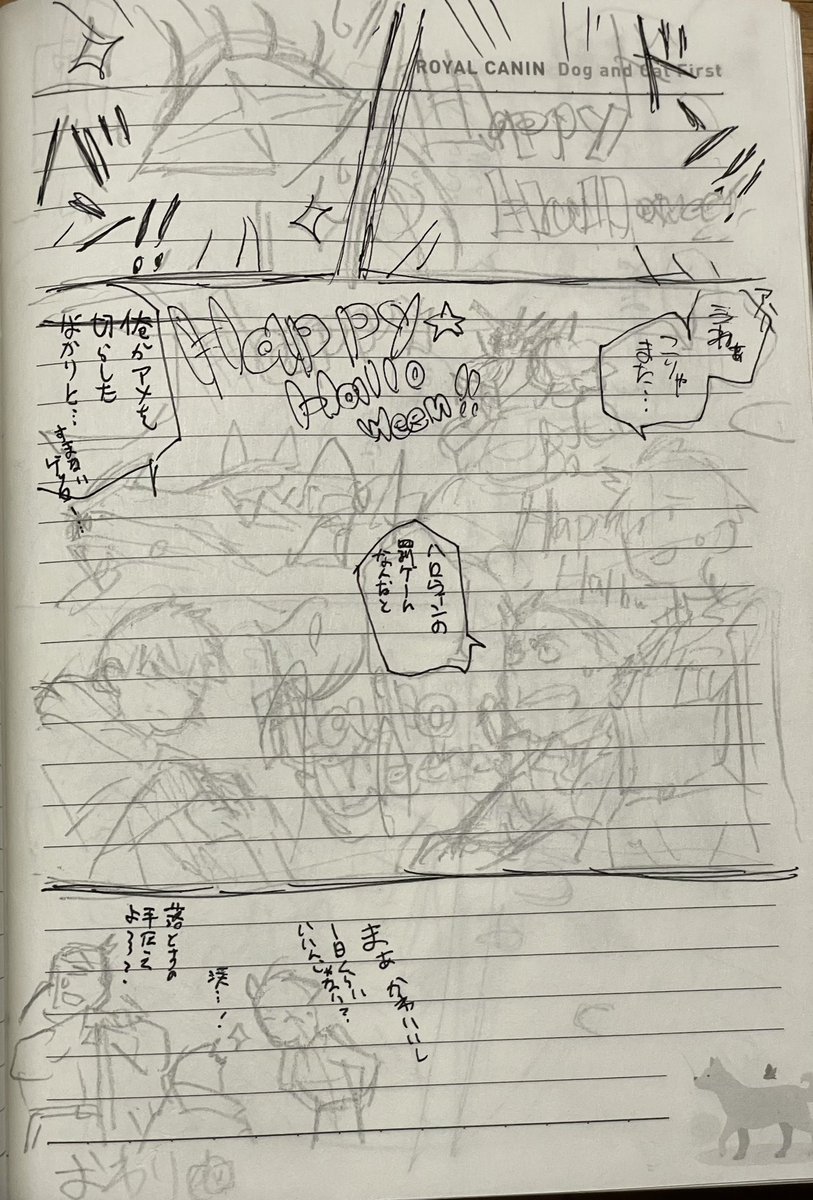 ROYAL CANIN Dog and Cat First
Happy
Halloween
バ
ン!!
ド
うわぁ
こりゃ
また…
Happy☆
Hallo
ween!!
俺がアメを
切らした
ばかりに…
すまない
Happy
ハロウィンの
罰ゲーム
なんだと
Hallo
ween
まぁ かわいいし
1日くらい
いいんじゃない?
涙…!
落とすの
手伝え
よ?
おわり